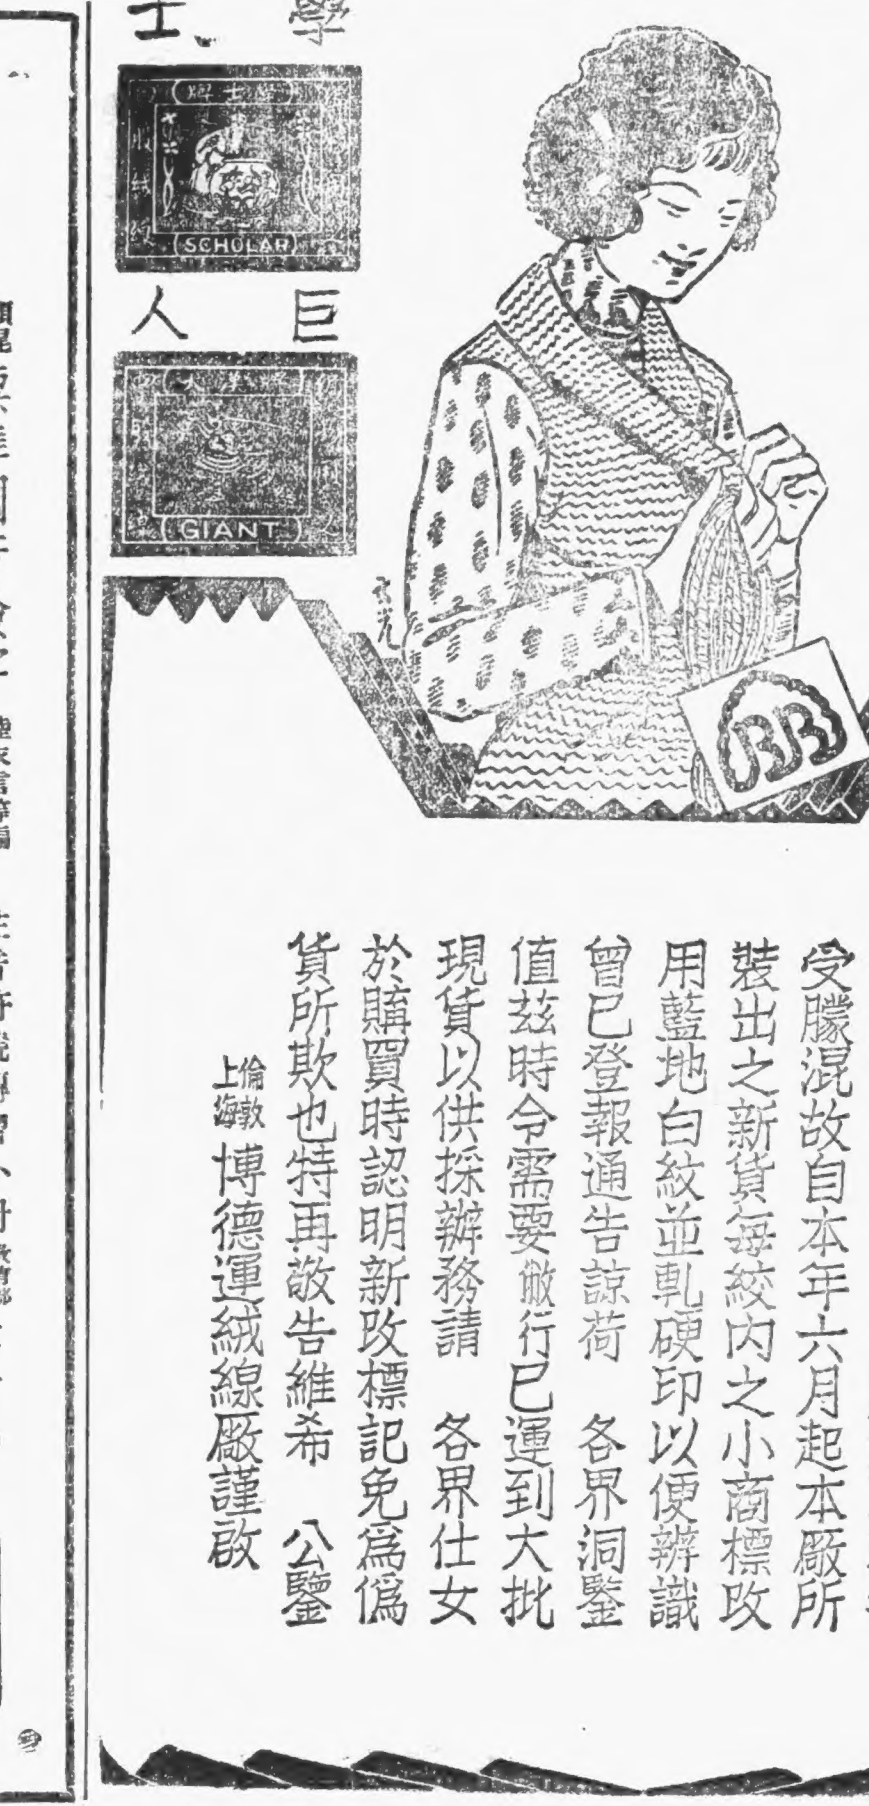 學士
（學士牌）
股絨線
(SCHOLAR)
巨人
(GIANT)
BB
受朦混故自本年六月起本廠所
裝出之新貨每絞内之小商標改
用藍地白紋並軋硬印以便辨識
曾已登報通告諒荷　各界洞鑒
值兹時令需要敝行已運到大批
現貨以供採辦務請　各界仕女
於購買時認明新改標記免爲僞
貨所欺也特再敬告維希　公鑒
倫敦
上海
博德運絨線廠謹啟